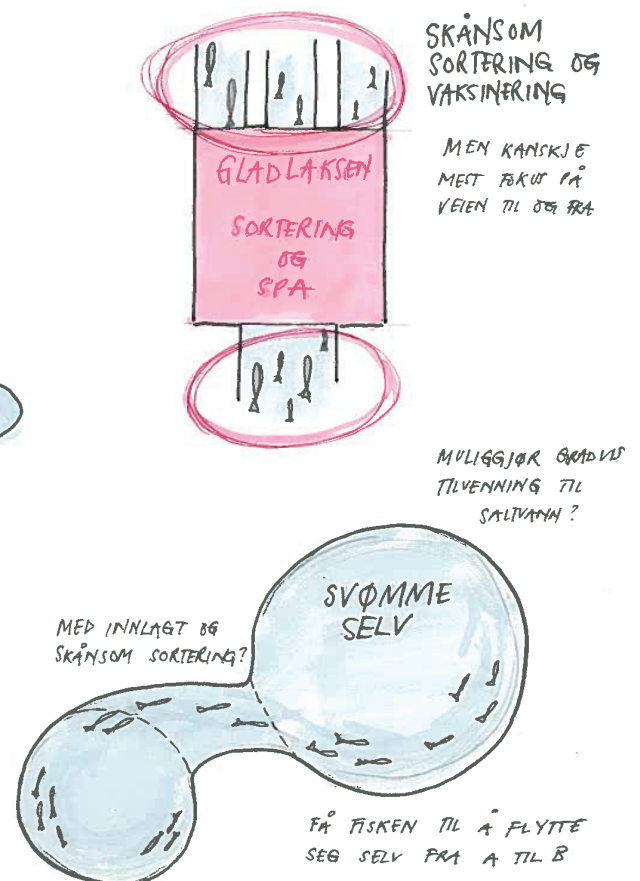 SKÅNSOM
SORTERING OG
VAKSINERING
MEN KANSKJE
MEST FOKUS PÅ
VEIEN TIL OG FRA
GLADLAKSEN
SORTERING
OG
SPA
MULIGGJØR GRADVIS
TILVENNING TIL
SALTVANN?
SVØMME
SELV
MED INNLAGT OG
SKÅNSOM SORTERING?
FÅ FISKEN TIL Å FLYTTE
SEG SELV FRA A TIL B